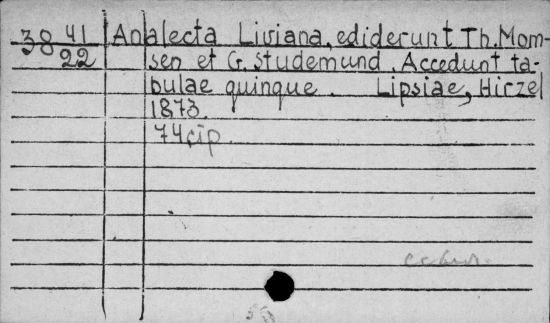 38 41/22 Analecta Liviana, ediderunt Th. Mom-
sen et G. Studemund. Accedunt ta-
bulae quinque. Lipsiae, Hirzel
1873.
74 cip.